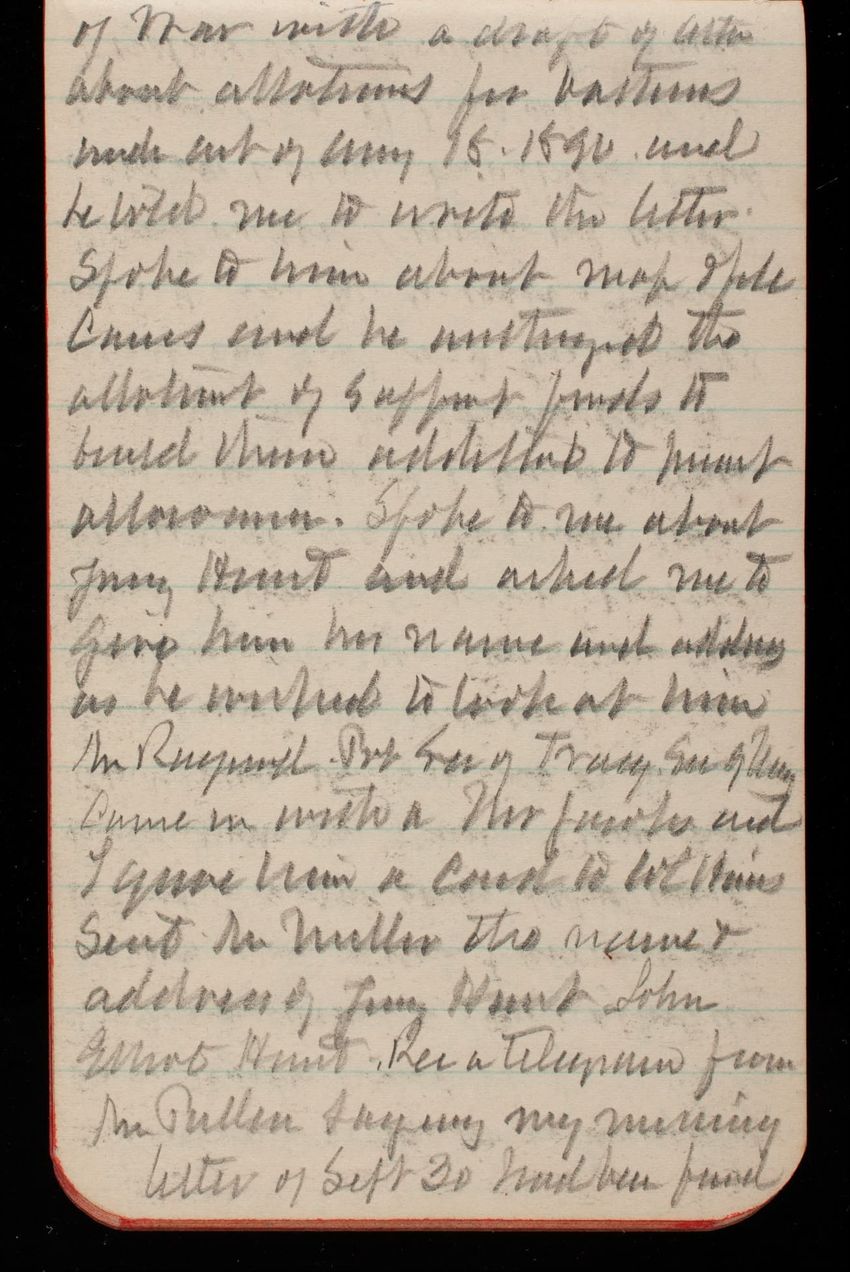 of War with a draft of letter
about allotments for bastions
made out of Aug 18. 1890. and
he told me to write the letter.
Spoke to him about map & file
Cases and he the
allotment of support funds to
build them additional to present
allowance. Spoke to me about
Jerry Hunt and asked me to
give him his name and address
as he wished to look at him
Mr Raymond. Prt of Tracy
Came in with a Mr Jacobs and
I gave him a Card to
Sent Mr Miller the name &
address of Jerry Hunt John
Elliot Hunt. Rec a telegram from
Mr Pullen saying my missing
letter of Sept 30 had been found